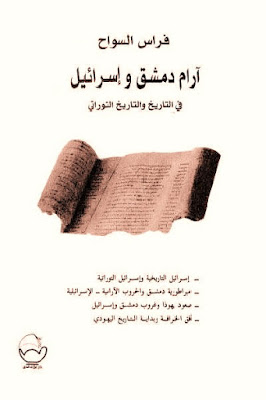 فراس السواح
آرام دمشق وإسرائيل
في التاريخ والتاريخ التوراتي
_ إسرائيل التاريخية وإسرائيل التوراتية
_ امبراطورية دمشق والحروب الآرامية - الإسرائيلية
_ صعود يهوذا وغروب دمشق وإسرائيل
_ أفق الخرافة وبداية التاريخ اليهودي